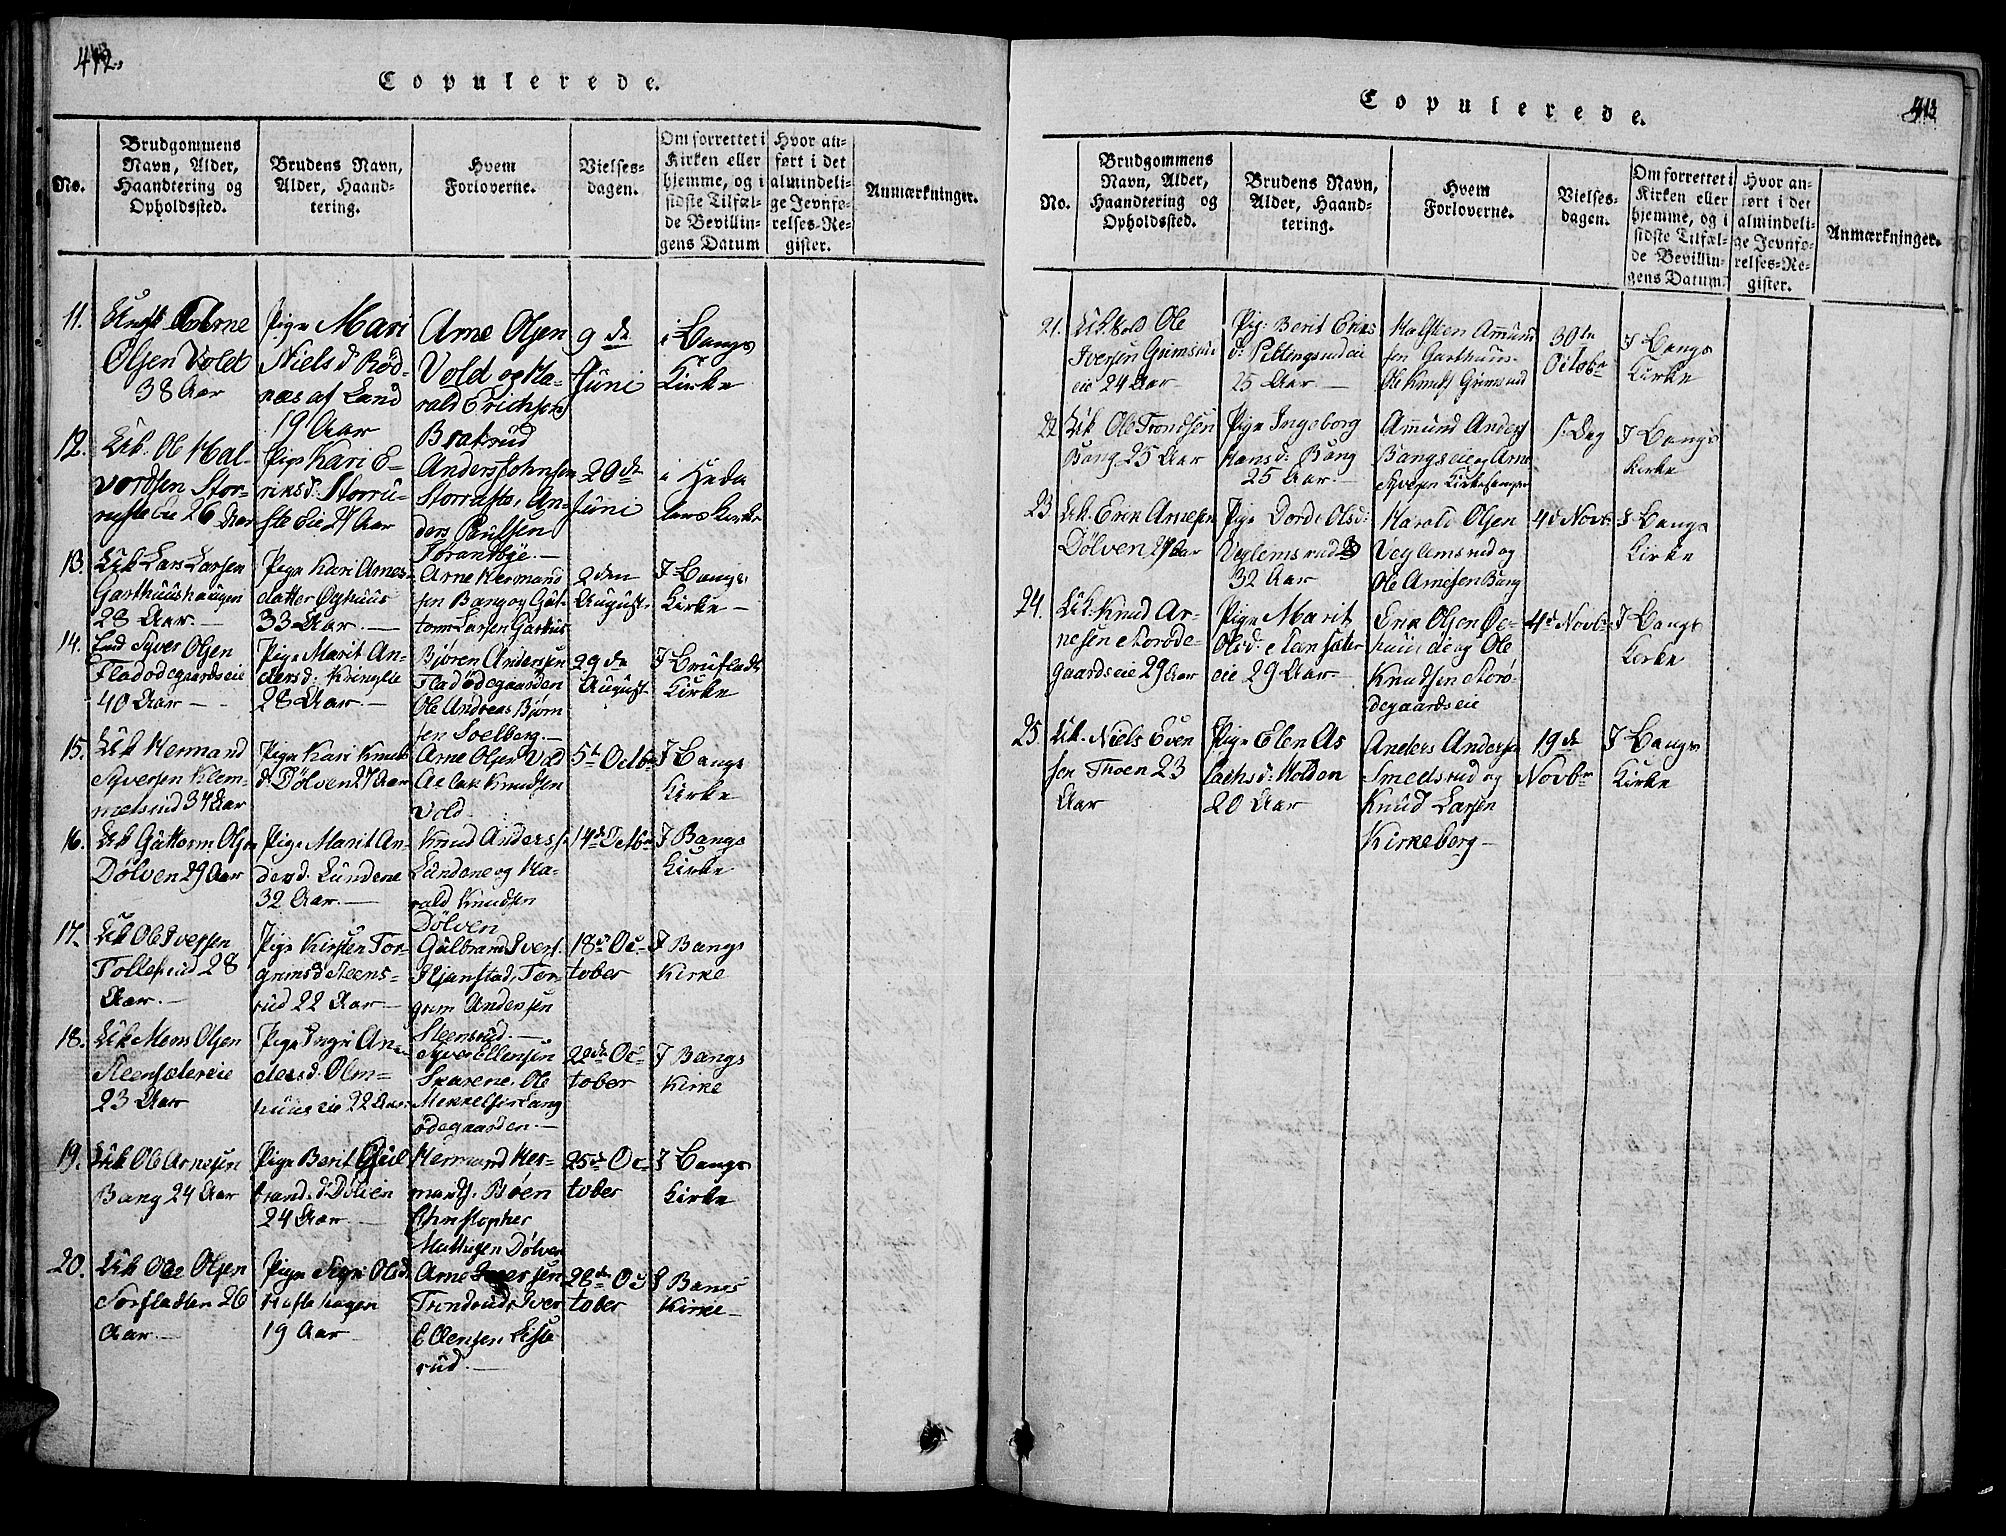 412.
Copulerede.
No.
Brudgommens
Navn, Alder,
Haandtering og
Opholdssted.
Brudens Navn,
Alder, Haand-
tering.
Hvem
Forloverne.
Vielses-
dagen.
Om forrettet i
Kirken eller
hjemme, og i
sidste Tilfæl-
de Bevillin-
gens Datum
Hvor an-
ført i det
almindeli-
ge Jevnfø-
relses-Re-
gister.
Anmærkninger.
11.
Arne
Olsen Vold
38 Aar
Pige Mari
Nielsd Rød-
næs af Land
19 Aar
Arne Olsen
Vold og Ha-
rald Erichsen
Bratrud
9de
Juni
i Bangs
Kirke
12.
Uk. Ole Hal-
vordsen Stor-
ruste Eie 26 Aar
Pige Kari E-
riksd. Storru-
ste Eie 27 Aar
Anders Johnsen
Storruste, An-
ders Paulsen
29de
Juni
i Heda
lens Kirke
13.
Uk Lars Larsen
Garthuushaugen
28 Aar.
Pige Kari Arnes-
datter
33 Aar.
Arne Hermand
sen Bang og Gut-
torm Larsen Garthus
2den
August
I Bangs
Kirke
14.
Syver Olsen
Fladødegaardseie
40 Aar
Pige Marit An-
dersd.
28 Aar.
Bjøren Andersen
Fladødegaarden
Ole Andreas Bjørn
sen Soelberg.
29de
August
I Bruflads
Kirke
15.
Uk Hermand
Syversen Klem-
metsrud 37 Aar
Pige Kari Knuds
d. Dølven 27 Aar
Arne Olsen Vold
Aslak Knudsen
Vold
5te Octbr
I Bangs
Kirke
16.
Uk Guttorm Olsen
Dølven 29 Aar
Pige Marit An-
dersd. Lundene
32 Aar.
Knud Anders.
Lundene og Ha-
rald Knudsen
Dølven
14de Octbr
I Bangs
Kirke
17.
Uk Ole Iversen
Tollefsrud 28
Aar.
Pige Kirsten Tor-
grimsd Steens-
rud 22 Aar
Gulbrand Ivers.
Torgrim Andersen
Steensrud.
18de Oc-
tober
I Bangs
Kirke
18.
Uk Mons Olsen
Steensætereie
23 Aar
Pige Ingri An-
dersd. Olm-
huus eie 22 Aar
Syver Ellensen
Skarene. Ole
Mekkelsen Lang
ødegaarden.
22de Oc-
tober
I Bangs
Kirke
19.
Uk Ole Arnesen
Bang 24 Aar
Pige Berit Gul
brands.d. Dølven
24 Aar.
Hermand Her-
mands. Bøen
Christopher
Mathisen Dølven
25de Oc-
tober
I Bangs
Kirke
20.
Uk Ole Olsen
26
Aar.
Pige Sigri Olsd
Hestehagen
19 Aar
Arne Iversen
Trondrud, Iver
Ellensen Liste
rud.
28de Oc
tober
I Bangs
Kirke
413
Copulerede.
No.
Brudgommens
Navn, Alder,
Haandtering og
Opholdssted.
Brudens Navn,
Alder, Haand-
tering.
Hvem
Forloverne.
Vielses-
dagen.
Om forrettet i
Kirken eller
hjemme, og i
sidste Tilfæl-
de Bevillin-
gens Datum.
Hvor an-
ført i det
almindeli-
ge Jevnfø-
relses-Re-
gister.
Anmærkninger.
21.
Ole
Iversen Grimsrud
eie 24 Aar
Pige Berit Eriks
d: Pettingsrudeie
25 Aar.
Halsteen Amund
sen Garthuus
Ole Knuds Grimsrud
30te
Octobr
I Bangs
Kirke
22
Uk Ole Trondsen
Bang 25 Aar
Pige Ingeborg
Hansd: Bang
25 Aar.
Amund Anders
Bangseie og Arne
Dag
I Bangs
Kirke
23
Uk. Erik Arnesen
Dølven 27 Aar
Pige Dorde Olsd:
Veglemsrud
32 Aar
Harald Olsen
Veglemsrud og
Ole Arnesen Bang
4de Novbr
I Bangs
Kirke
24.
Uk. Knud Ar-
nesen Storøde-
gaardseie 29 Aar
Pige Marit
Olsd. Steensæter
eie 29 Aar
Erik Olsen
og Ole
Knudsen Storø-
degaardseie
4de Novbr
I Bangs
Kirke
25.
Uk. Niels Even
sen Thoen 23
Aar
Pige Elen As
lachsd: Holden
20 Aar
Anders Anders
Smedsrud og
Knud Larsen
Kirkeberg
19de
Novbr
I Bangs
Kirke